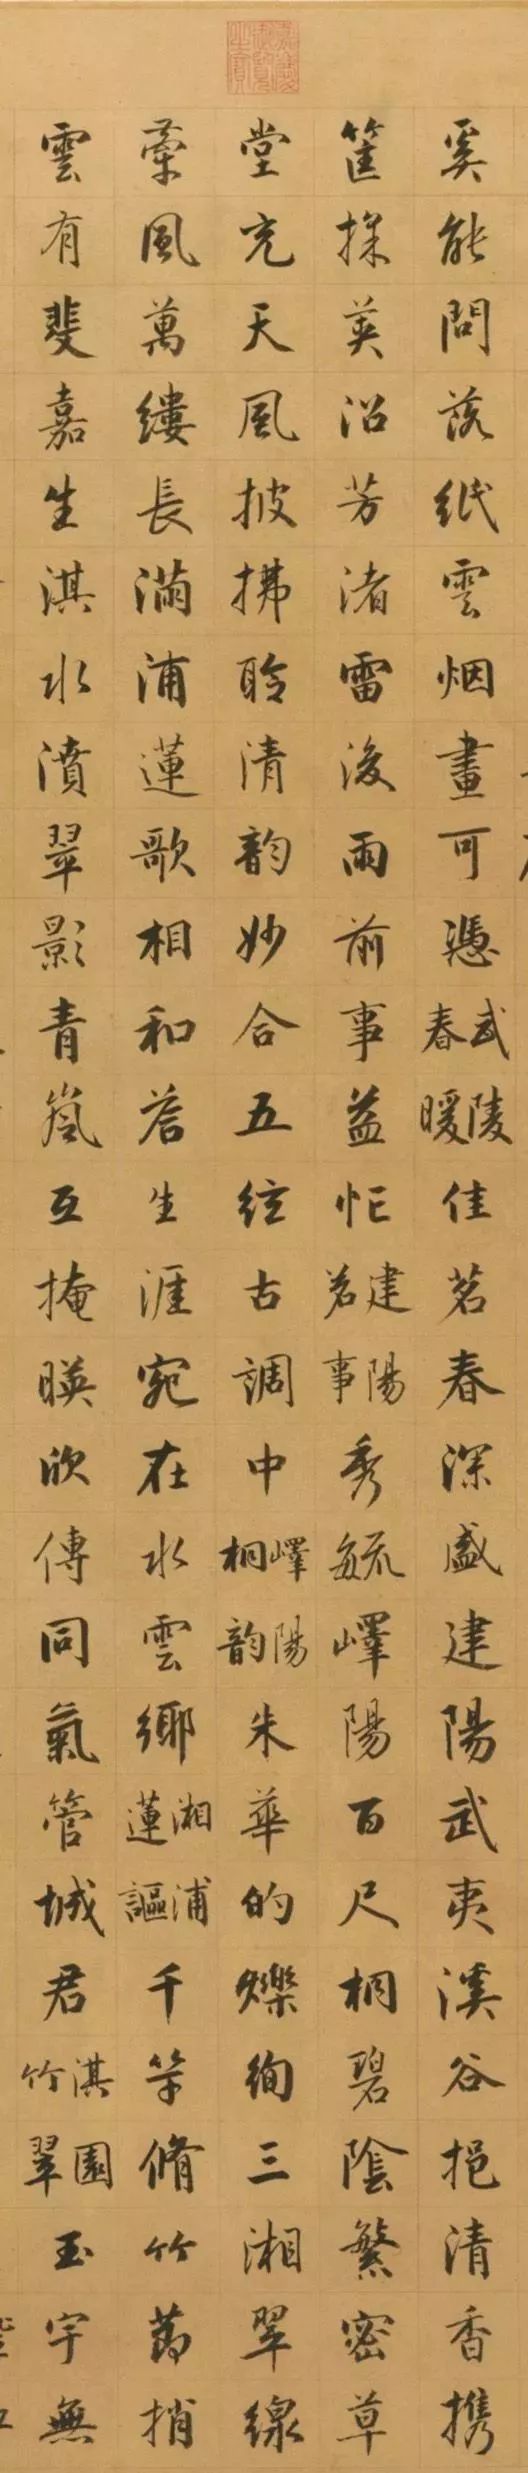 嘉慶御覽之寶
奚能問落紙雲烟畫可憑武陵春暖佳茗春深盛建陽武夷溪谷挹清香携
筐採英沿芳渚雷後雨前事益忙建陽茗事秀毓嶧陽百尺桐碧陰繁密草
堂充天風披拂聆清韵妙合五絃古調中嶧陽桐韵朱華的爍絢三湘翠線
牽風萬縷長滿浦蓮歌相和答生涯宛在水雲鄉湘浦蓮謳千竿脩竹節捎
雲有斐嘉生淇水濆翠影青嵐互掩暎欣傳同氣管城君淇園竹翠玉宇無